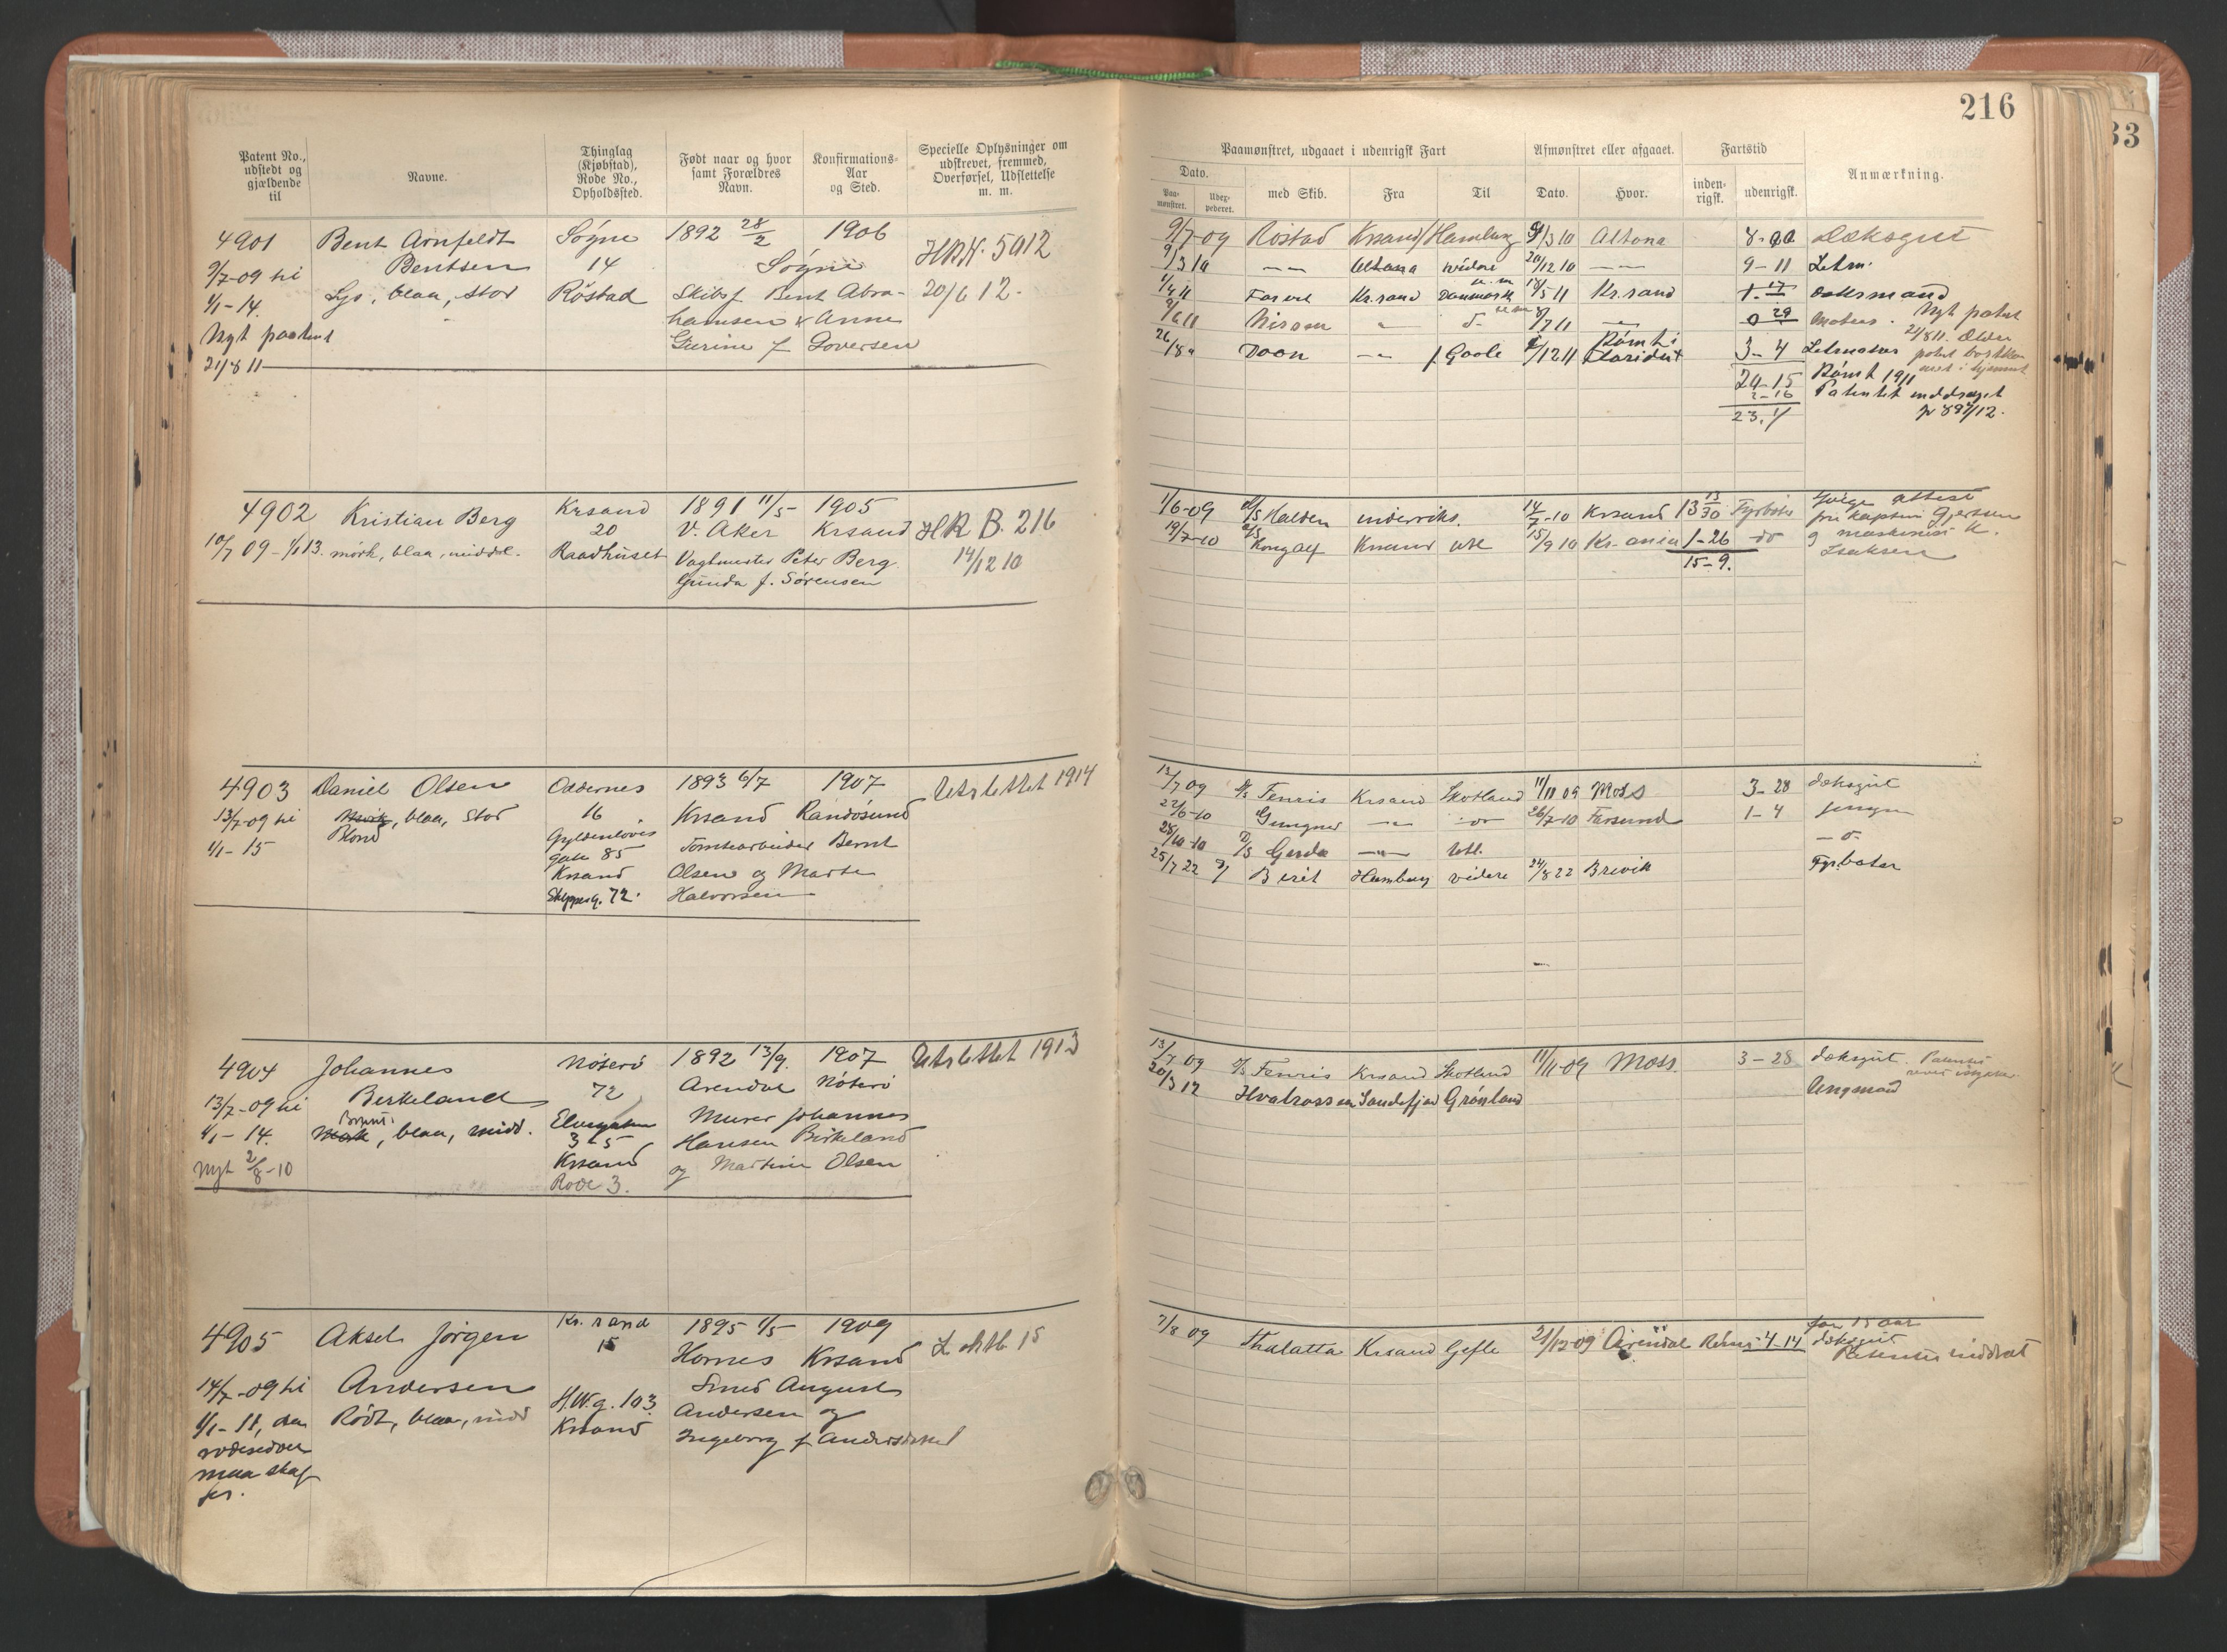 216
33
Patent No., udstedt og gjældende til
Navne.
Thinglag (Kjøbstad), Rode No., Opholdssted.
Født naar og hvor samt Forældres Navn.
Konfirmations-Aar og Sted.
Specielle Oplysninger om udskrevet, fremmed, Overførsel, Udslettelse m. m.
Paamønstret, udgaaet i udenrigsk Fart
Afmønstret eller afgaaet.
Fartstid
Anmærkning.
Dato.
Paa-mønstret.
Udex-pederet.
med Skib.
Fra
Til
Dato.
Hvor.
inden-rigsk.
udenrigsk.
4901 Bent Arnfeldt Søgne 1892 28/2 1906
9/7-09 til Bentsen 14 Søgne HRN. 5012
1/1-14. Lys, blaa, stor Røstad Skibsf. Bent Abra- 20/6 12.
Nyt patent hamsen & Anne
21/8 11 Gurine f Goversen
9/7-09 Röstad Krsand / Hamburg 9/3 10 Altona 8-00 Dæksgut
9/3 10 — Altona videre 20/12 10 — 9-11 Letm.
Kr.rand Danmark 18/5 11 Kr.rand 1.17 Dæksmand
Nyt patent
26/8 Doon — f. Goole /12 11 Rømt i 3-4 Letmatros
24/8 11. Ældre
20-15 Rømt 1911
2-16 Patentet inddraget
23. 1/
4902 Kristian Berg Krsand 1891 11/5 1905
10/7 09 - 1/1 13. mörk, blaa, middel. 20 V. Aker Krsand HR B. 216
Raadhuset Vagtmester Peter Berg 14/12 10
Gunda f. Sörensen
1/6-09 D/S Halden indenriks. 14/7-10 Krsand 13 13/30 Fyrböter
19/7-10 D/S Kong Alf Krsand ute 15/9 10 Kr.ania 1-26 do
15-9.
Ifølge attest
fra kaptein Gjertsen
og maskinist K.
Isaksen
4903 Daniel Olsen Oddernes 1893 6/7 1907 Utslettet 1914
13/7-09 til Mörk, blaa, stor 16 Krsand Randösund
1/1-15 Blond Gyldenlöves Tomtearbeider Bernt
gate 85 Olsen og Marte
Krsand Halvorsen
Skipperg. 72.
13/7 09 D/S Fenris Krsand Skotland 11/11 09 Moss 3-28 dæksgut
22/6-10 Gungner — do 26/7-10 Farsund 1-4 jungm
28/10-10 D/S Gerda — Utl. — o —
25/7 22 D/ Berit Hamburg videre 24/8 22 Brevik Fyrböter
4904 Johannes Nöterö 1892 13/9. 1907 Utslettet 1913
13/7-09 til Birkeland 72 Arendal Nöterö
1/1-14. Mörk Brunt, blaa, midd. Elvegaten Murer Johannes
Nyt 2/8-10 Krsand Hansen Birkeland
Rode 3. og Martine Olsen
13/7 09 D/S Fenris Krsand Skotland 11/11-09 Moss. 3-28 dæksgut. Patentet
20/3 12 Hvalrossen Sandefjord Grønland Ungmand
4905 Aksel Jörgen Kr.sand 1895 1/5 1909
15 Hornes Krsand
14/7-09 til Andersen Smed August
1/1-11, den Rödt, blaa, midd H.W.g. 103. Andersen og
Krsand Ingeborg f
maa skaf
fes.
7/8 09 Thalatta Krsand Gefle 21/12-09 Arendal 4-14 dæksgut
for 15 aar
Patentet inddrat